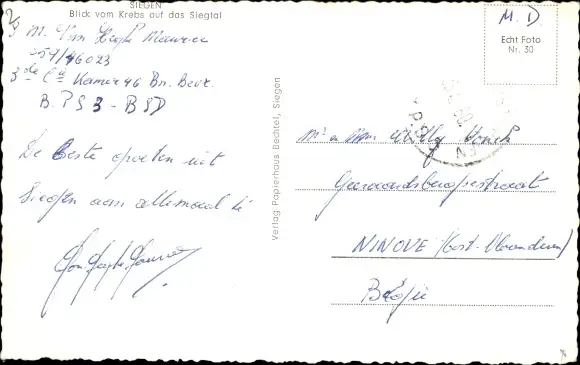 SIEGEN
Blick vom Krebs auf das Siegtal
M. Van Maurice
3de Cie Kamer 46 Bn. Bevr.
B.P.S 3 - BSD
De Beste groeten uit
Siegen aan allemaal
Verlag Papierhaus Bechtel, Siegen
M.D
Echt Foto
Nr. 30
Mr & Mme Willy
Geraardsbergsestraat
NINOVE (Oost-Vlaanderen)
België